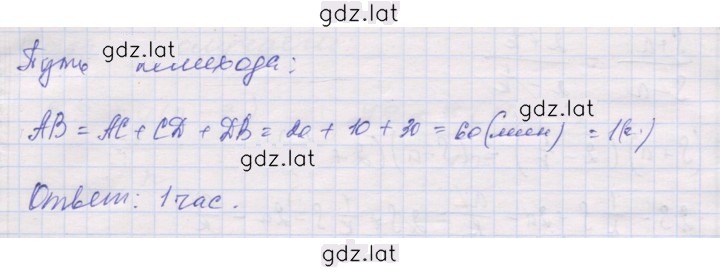 gdz.lat
gdz.lat
Путь пешехода:
gdz.lat
AB = AC + CD + DB = 20 + 10 + 30 = 60 (мин) = 1 (ч.)
gdz.lat
Ответ: 1 час.
gdz.lat